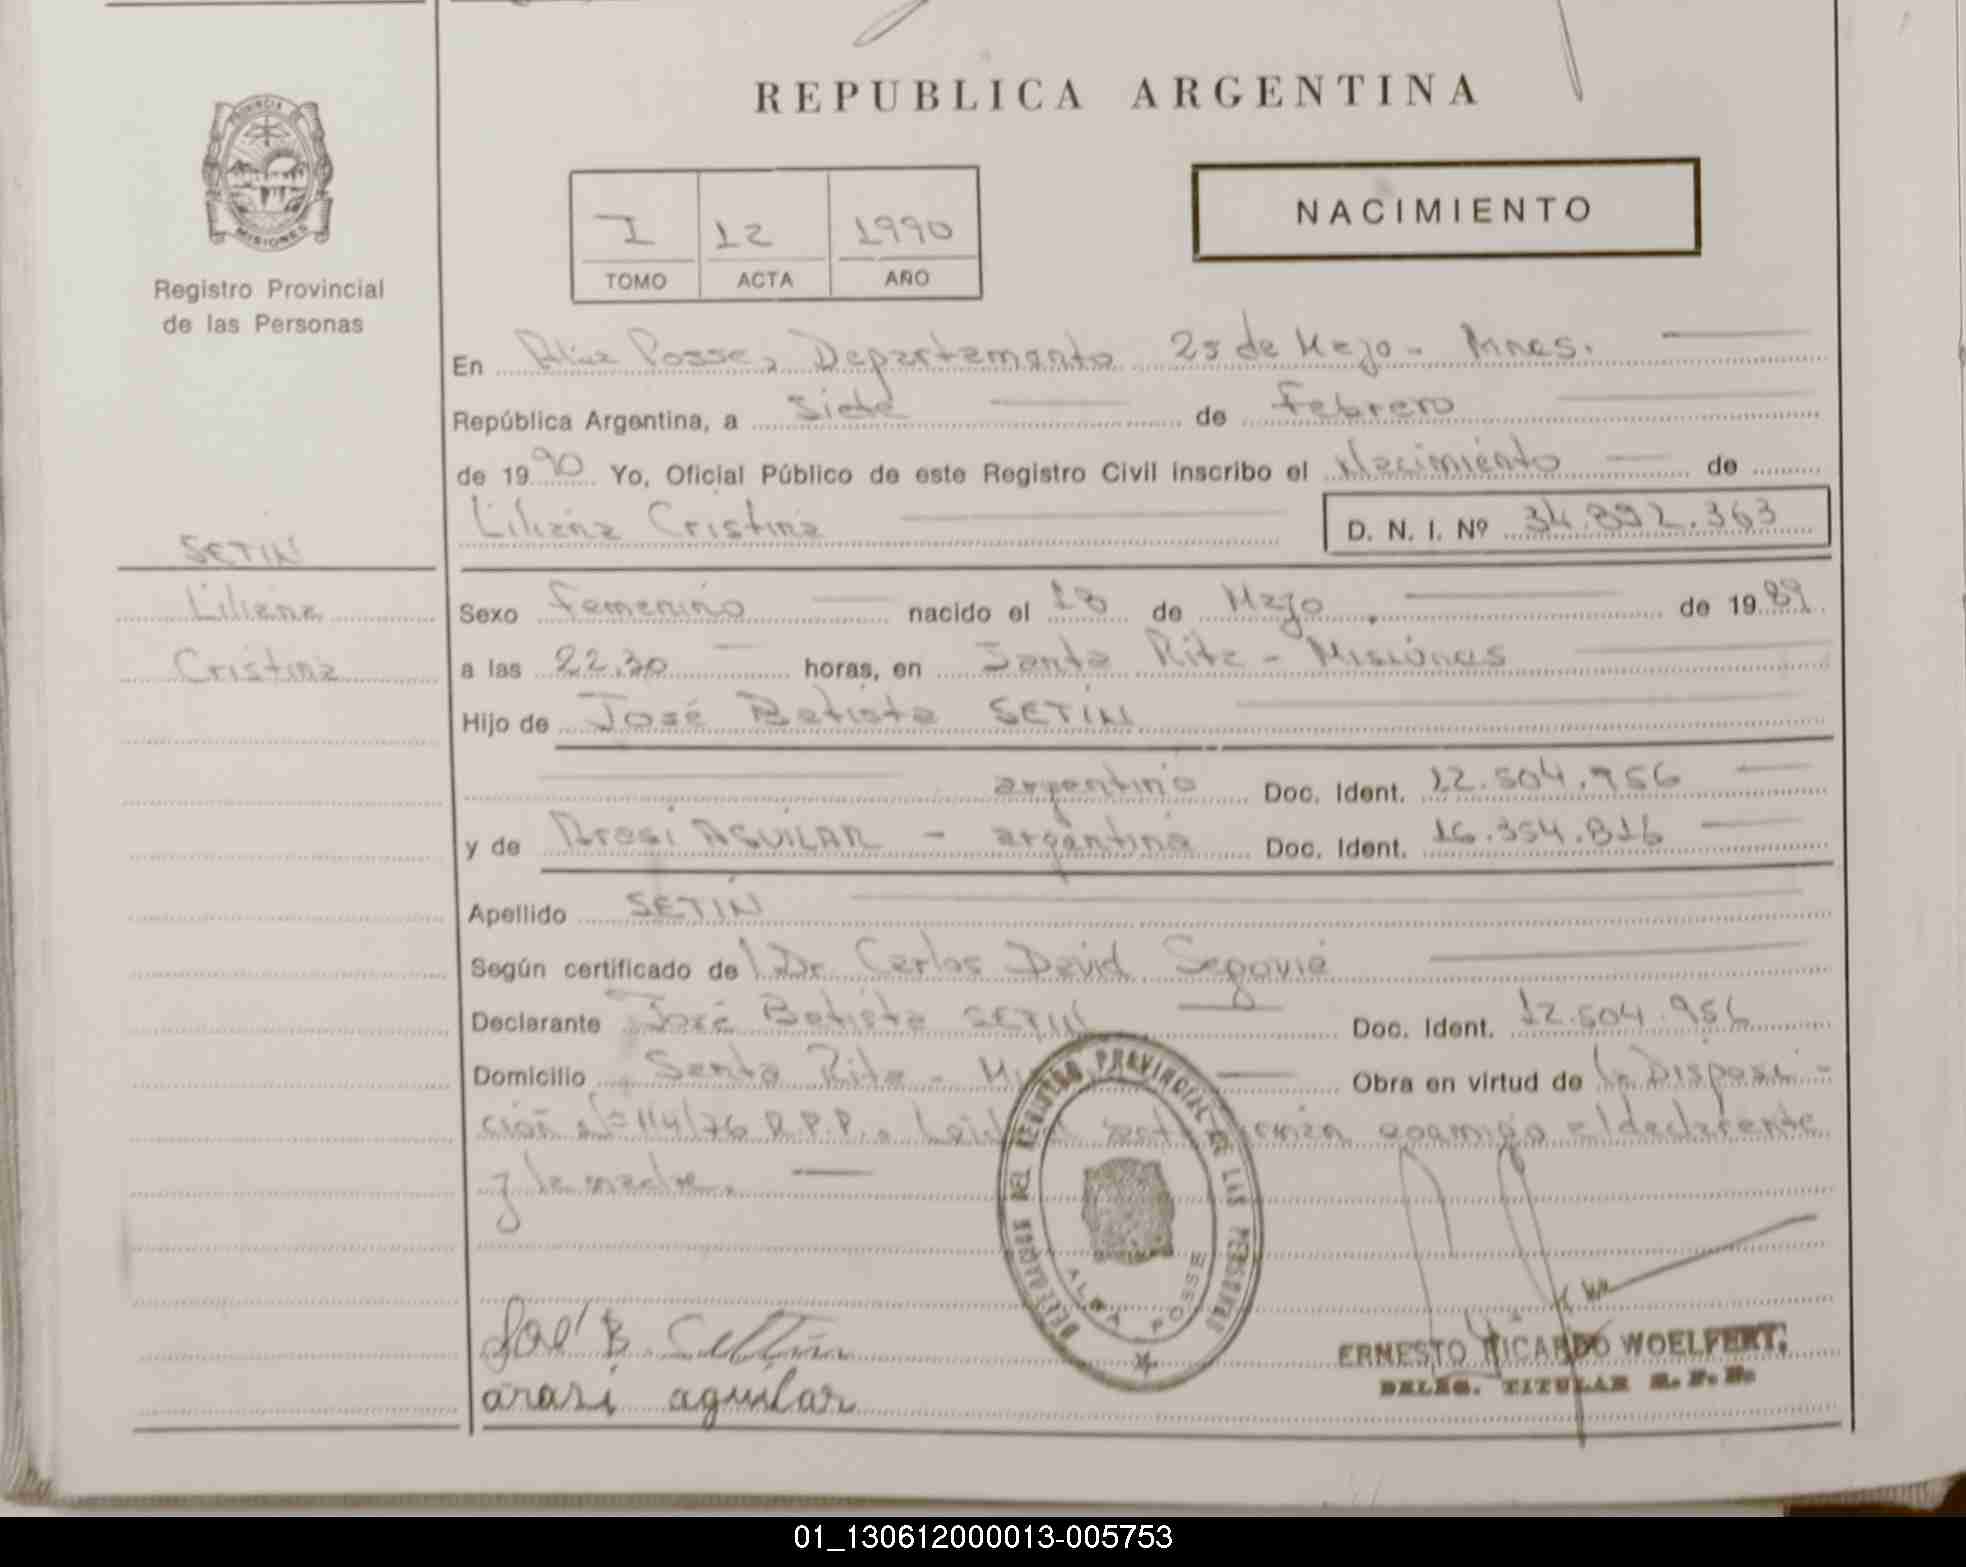 REPUBLICA ARGENTINA
PROVINCIA
MISIONES
Registro Provincial
de las Personas
I 12 1990
TOMO ACTA AÑO
NACIMIENTO
En Alba Posse, Departamento 25 de Mayo - Mnes.
República Argentina, a siete de febrero
de 1990 Yo, Oficial Público de este Registro Civil inscribo el Nacimiento de
Liliana Cristina D. N. I. Nº 34.892.363
SETIN
Liliana
Cristina
Sexo femenino nacido el 18 de Mayo de 1989
a las 22.30 horas, en Santa Rita - Misiones
Hijo de José Batista SETIN
argentino Doc. Ident. 12.504.956
y de Arasi AGUILAR - argentina Doc. Ident. 16.354.816
Apellido SETIN
Según certificado de Dr. Carlos David Segovia
Declarante José Batista SETIN Doc. Ident. 12.504.956
Domicilio Santa Rita - Obra en virtud de la Disposi-
ción Nº 114/76 R.P.P. conmigo el declarante
y la madre.
DELEGACION DEL REGISTRO PROVINCIAL DE LAS PERSONAS
ALBA POSSE
José B. Settin
arasi aguilar
ERNESTO RICARDO WOELFERT
DELEG. TITULAR R. P. P.
01_130612000013-005753